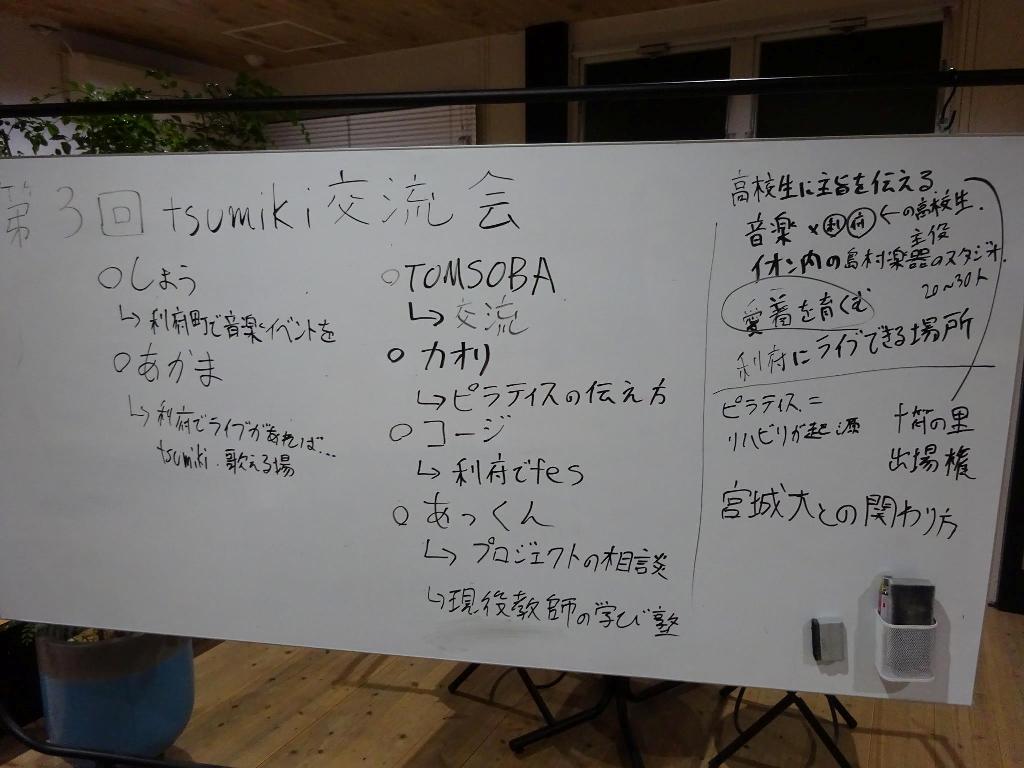 第3回 tsumiki 交流会
○しょう
↳利府町で音楽イベントを
○あかま
↳利府でライブがあれば…
tsumiki.歌える場
○TOMSOBA
↳交流
○カオリ
↳ピラティスの伝え方
○コージ
↳利府でfes
○あっくん
↳プロジェクトの相談
↳現役教師の学び塾
高校生に主旨を伝える.
音楽×利府←の高校生.
主役
イオン内の島村楽器のスタジオ.
20~30人
愛着を育くむ
利府にライブできる場所
ピラティス=
リハビリが起源
十符の里
出場権
宮城大との関わり方